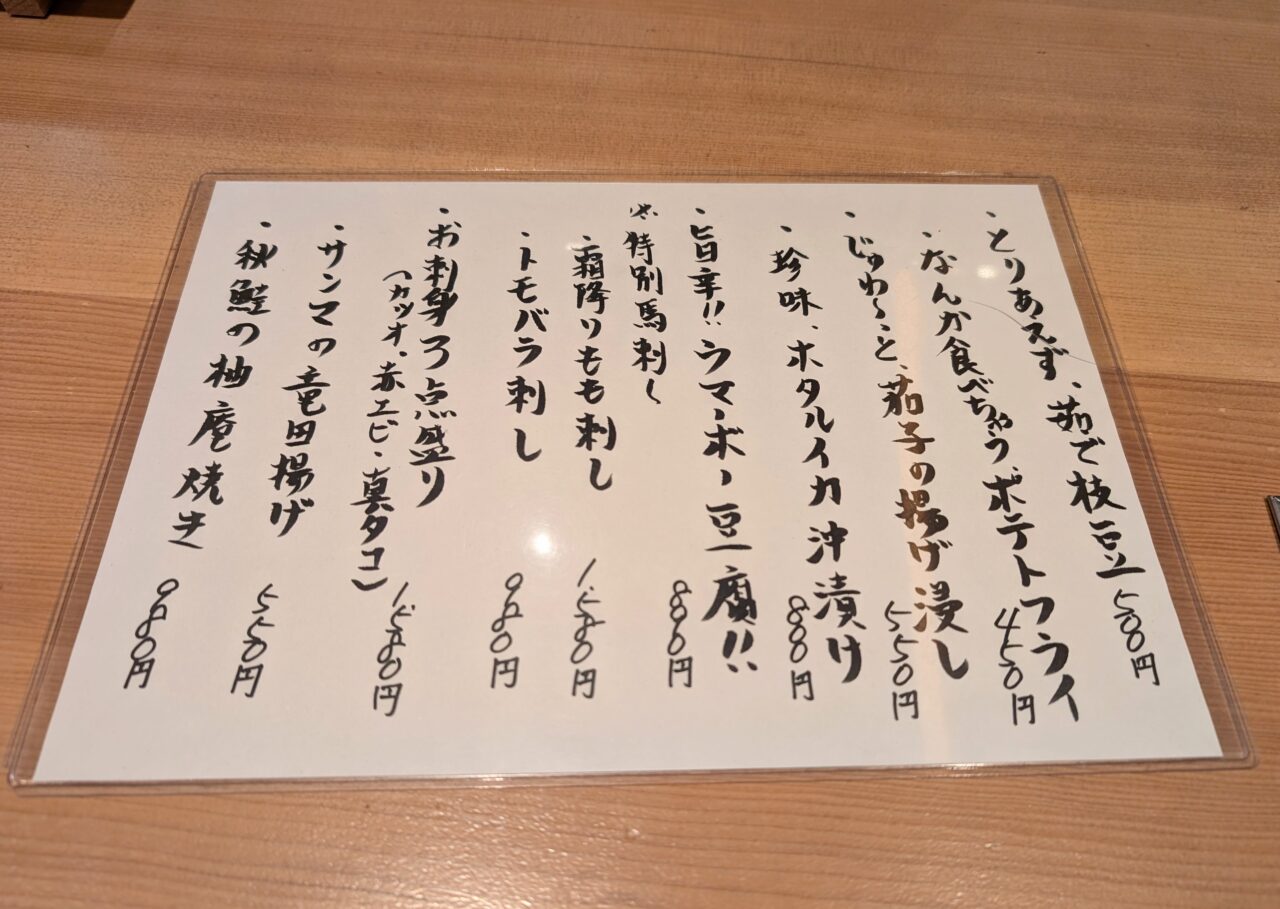 ・とりあえず、茹で枝豆 500円
・なんか食べちゃうポテトフライ 450円
・じゅわ〜と、茄子の揚げ浸し 550円
・珍味、ホタルイカ沖漬け 800円
・旨辛!!ウマーボー豆腐!! 880円
※特別馬刺し
・霜降りもも刺し 1,580円
・トモバラ刺し 980円
・お刺身3点盛り
(カツオ、赤エビ、真タコ) 1,580円
・サンマの竜田揚げ 550円
・秋鮭の柚庵焼き 980円